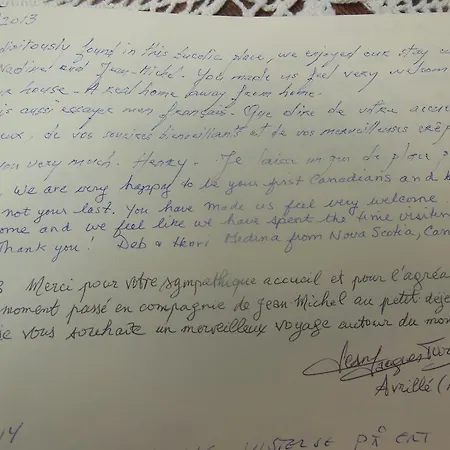 2013
found in this bucolic place, we enjoyed our stay
Nadine and Jean-Michel. You made us feel very welcom
house - A real home away from home.
is aussi essayer mon français. Que dire de votre accue
eux, de vos sourires bienveillants et de vos merveilleuses crêp
you very much. Henry. - Je laisse un peu de place p
we are very happy to be your first Canadians and h
not your last. You have made us feel very welcome
ome and we feel like we have spent the time visitin
Thank you! Deb & Henri Medina from Nova Scotia, Can
3 Merci pour votre sympathique accueil et pour l'agréa
moment passé en compagnie de Jean-Michel au petit déje
je vous souhaite un merveilleux voyage autour du mon
Jean Jacques
Avrillé (
14